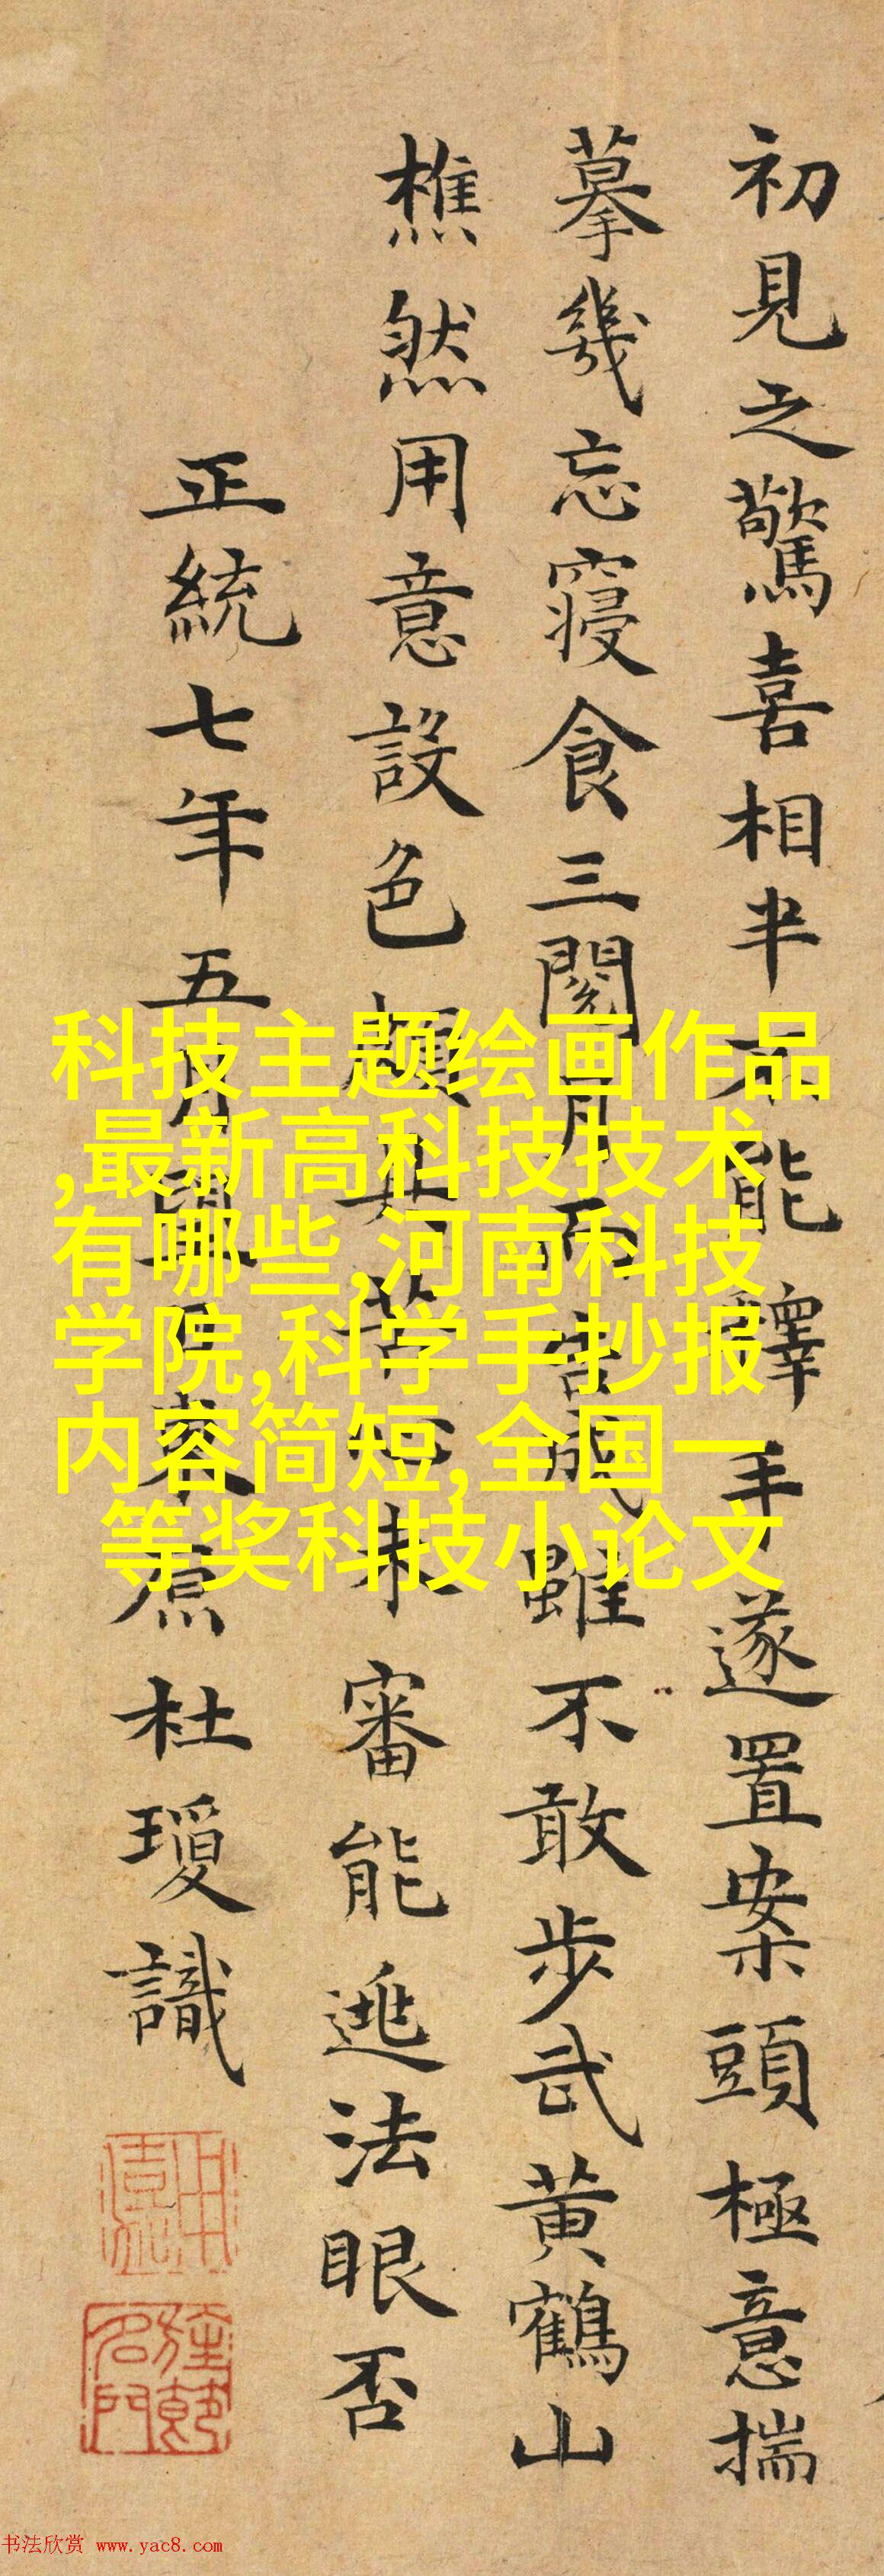 初見之驚喜相半不能釋手遂置案頭極意揣
摹幾忘寢食三閱月而告成雖不敢步武黃鶴山
樵然用意設色頗苦心未審能逃法眼否
正統七年五月望日東原杜瓊識
科技主题绘画作品
,最新高科技技术
有哪些,河南科技
学院,科学手抄报
内容简短,全国一
等奖科技小论文
书法欣赏 www.yac8.com